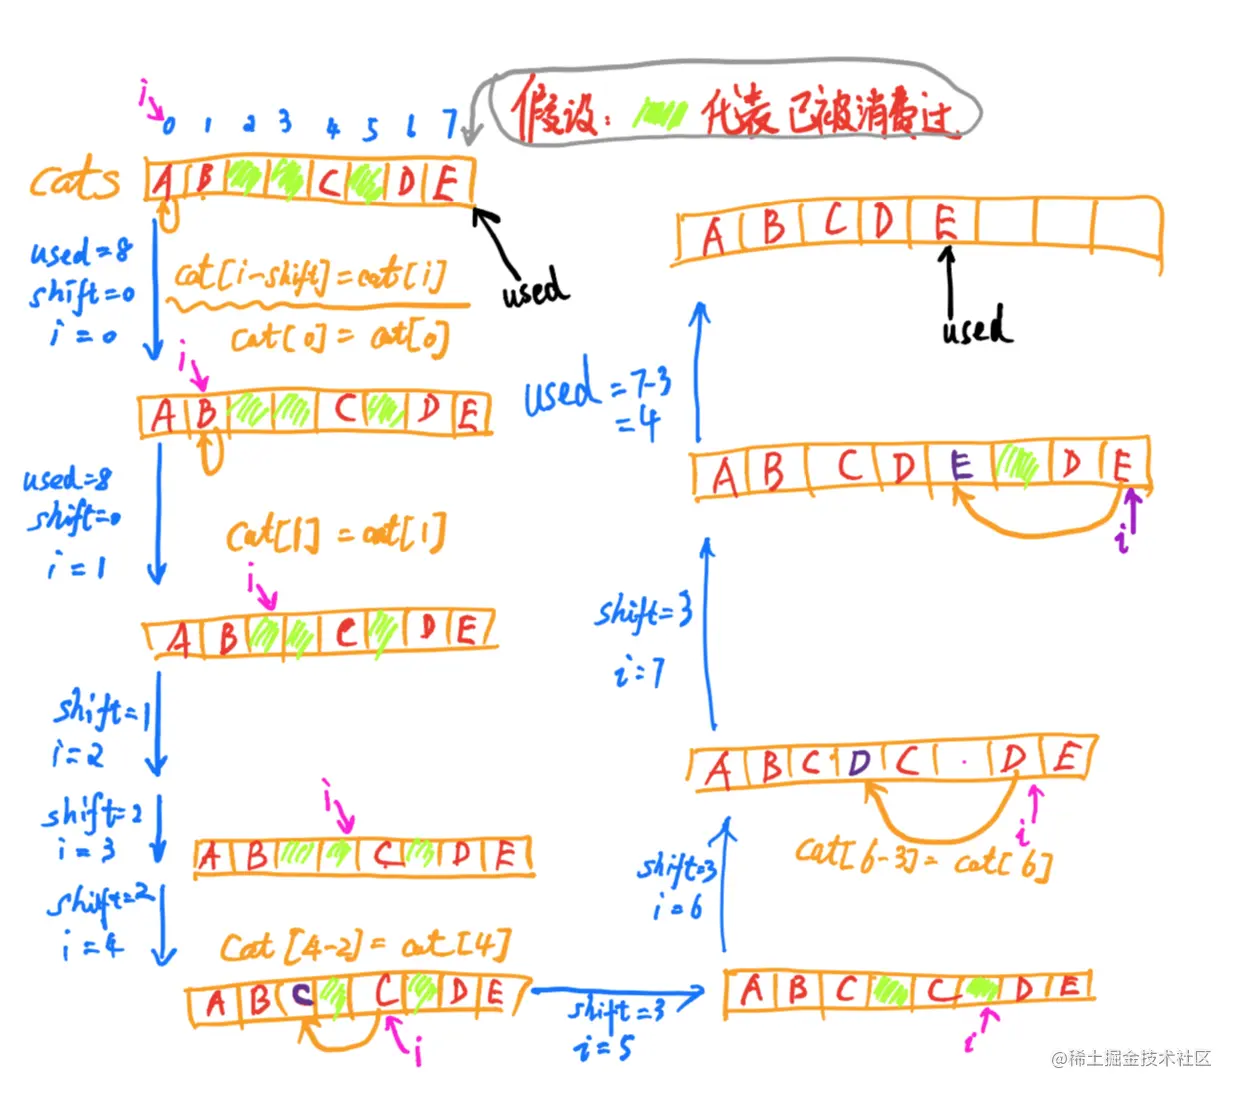 i
0 1 2 3 4 5 6 7
假设： 代表已被消费过
cats
A B C D E
used=8
shift=0
i=0
cat[i-shift]=cat[i]
cat[0]=cat[0]
used
i
A B C D E
used=8
shift=0
i=1
cat[1]=cat[1]
i
A B C D E
shift=1
i=2
shift=2
i=3
i
A B C D E
shift=2
i=4
cat[4-2]=cat[4]
A B C C D E
i
shift=3
i=5
A B C C D E
i
shift=3
i=6
cat[6-3]=cat[6]
A B C D C D E
i
shift=3
i=7
A B C D E D E
i
used=7-3
=4
A B C D E
used
@稀土掘金技术社区